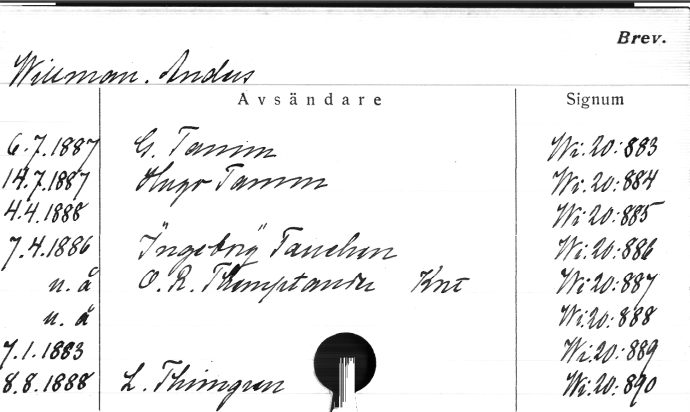 Brev.
Willman. Anders
Avsändare Signum
6.7.1887 G. Tamm Wi.20:883
14.7.1887 Hugo Tamm Wi.20:884
4.4.1888 Wi:20:885
7.4.1886 "Ingeborg" Tauchen Wi:20:886
u. å O. R. Themptander Knt Wi:20:887
u. å Wi.20:888
7.1.1883 Wi.20:889
8.8.1888 L. Thimgren Wi.20:890